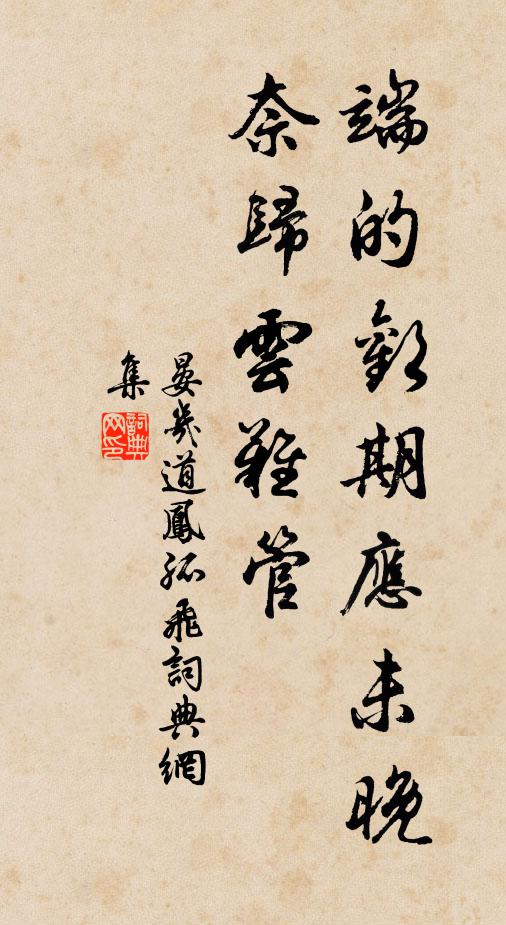 端的歡期應未晚
奈歸雲難管
晏幾道鳳孤飛詞典網
集
詞典網印